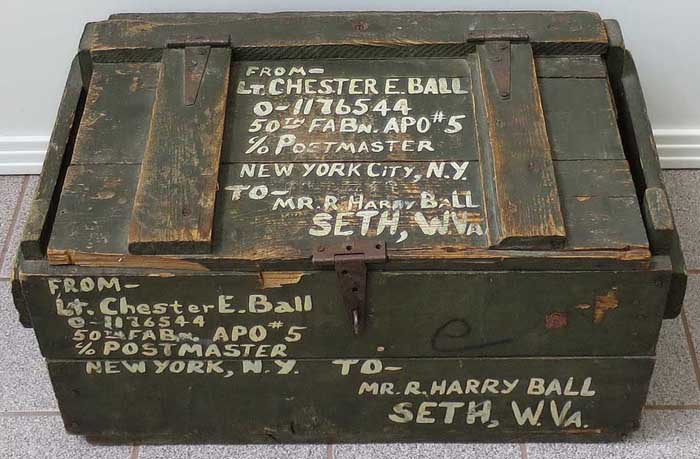 FROM—
Lt. CHESTER E. BALL
O-1176544
50TH FABN. APO #5
c/o POSTMASTER
NEW YORK CITY, N.Y.
TO—
MR. R HARRY BALL
SETH, W.VA
FROM—
Lt. Chester E. Ball
O-1176544
50TH FABN. APO #5
c/o POSTMASTER
NEW YORK, N.Y. TO—
MR. R. HARRY BALL
SETH, W.VA.
e